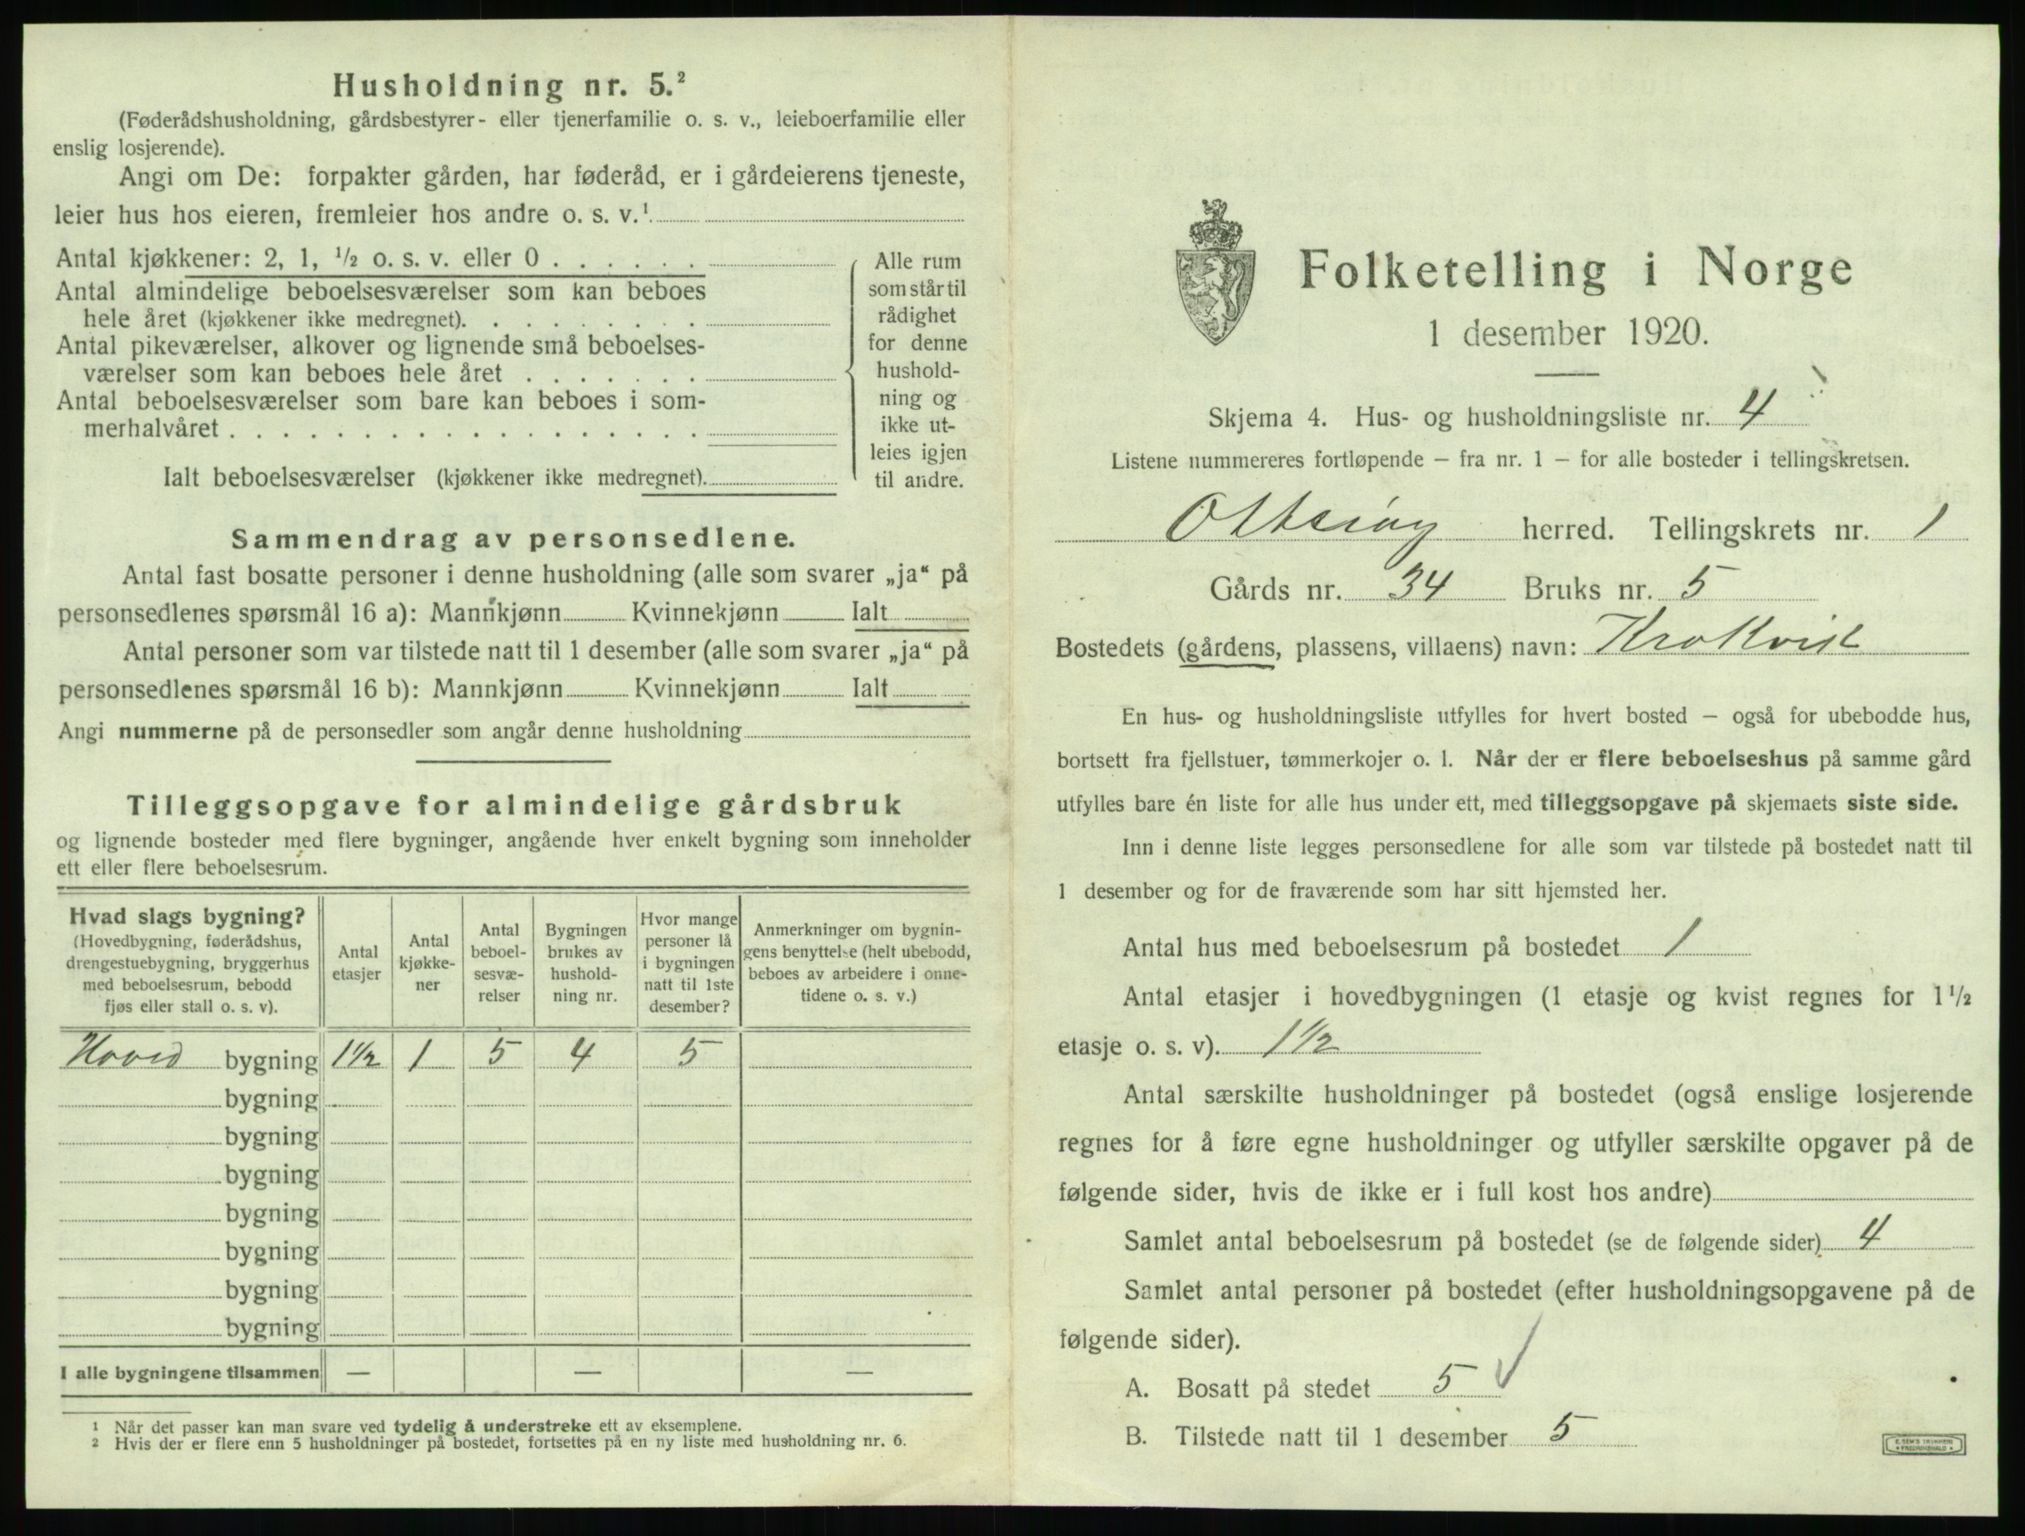 Husholdning nr. 5.²
(Føderådshusholdning, gårdsbestyrer- eller tjenerfamilie o. s. v., leieboerfamilie eller
enslig losjerende).
Angi om De: forpakter gården, har føderåd, er i gårdeierens tjeneste,
leier hus hos eieren, fremleier hos andre o. s. v.¹
Antal kjøkkener: 2, 1, ½ o. s. v. eller 0 . . . . . .
Antal almindelige beboelsesværelser som kan beboes
hele året (kjøkkener ikke medregnet). . . . . . . . .
Antal pikeværelser, alkover og lignende små beboelses-
værelser som kan beboes hele året . . . . . . .
Antal beboelsesværelser som bare kan beboes i som-
merhalvåret . . . . . . . . . . . . . . . . . .
Ialt beboelsesværelser (kjøkkener ikke medregnet).
Alle rum
som står til
rådighet
for denne
hushold-
ning og
ikke ut-
leies igjen
til andre.
Sammendrag av personsedlene.
Antal fast bosatte personer i denne husholdning (alle som svarer „ja“ på
personsedlenes spørsmål 16 a): Mannkjønn Kvinnekjønn Ialt
Antal personer som var tilstede natt til 1 desember (alle som svarer „ja“ på
personsedlenes spørsmål 16 b): Mannkjønn Kvinnekjønn Ialt
Angi nummerne på de personsedler som angår denne husholdning
Tilleggsopgave for almindelige gårdsbruk
og lignende bosteder med flere bygninger, angående hver enkelt bygning som inneholder
ett eller flere beboelsesrum.
Hvad slags bygning?
(Hovedbygning, føderådshus,
drengestuebygning, bryggerhus
med beboelsesrum, bebodd
fjøs eller stall o. s. v).
Antal
etasjer
Antal
kjøkke-
ner
Antal
beboel-
sesvæ-
relser
Bygningen
brukes av
hushold-
ning nr.
Hvor mange
personer lå
i bygningen
natt til 1ste
desember?
Anmerkninger om bygnin-
gens benyttelse (helt ubebodd,
beboes av arbeidere i onne-
tidene o. s. v.)
Hoved bygning 1½ 1 5 4 5
bygning
bygning
bygning
bygning
bygning
bygning
bygning
I alle bygningene tilsammen — — —
¹ Når det passer kan man svare ved tydelig å understreke ett av eksemplene.
² Hvis der er flere enn 5 husholdninger på bostedet, fortsettes på en ny liste med husholdning nr. 6.
Folketelling i Norge
1 desember 1920.
Skjema 4. Hus- og husholdningsliste nr. 4
Listene nummereres fortløpende – fra nr. 1 – for alle bosteder i tellingskretsen.
Otterøy herred. Tellingskrets nr. 1
Gårds nr. 34 Bruks nr. 5
Bostedets (gårdens, plassens, villaens) navn: Krokvist
En hus- og husholdningsliste utfylles for hvert bosted – også for ubebodde hus,
bortsett fra fjellstuer, tømmerkojer o. l. Når der er flere beboelseshus på samme gård
utfylles bare én liste for alle hus under ett, med tilleggsopgave på skjemaets siste side.
Inn i denne liste legges personsedlene for alle som var tilstede på bostedet natt til
1 desember og for de fraværende som har sitt hjemsted her.
Antal hus med beboelsesrum på bostedet 1
Antal etasjer i hovedbygningen (1 etasje og kvist regnes for 1½
etasje o. s. v). 1½
Antal særskilte husholdninger på bostedet (også enslige losjerende
regnes for å føre egne husholdninger og utfyller særskilte opgaver på de
følgende sider, hvis de ikke er i full kost hos andre)
Samlet antal beboelsesrum på bostedet (se de følgende sider) 4
Samlet antal personer på bostedet (efter husholdningsopgavene på de
følgende sider).
A. Bosatt på stedet 5 √
B. Tilstede natt til 1 desember 5
E. SEM'S TRYKKERI
FREDRIKSHALD